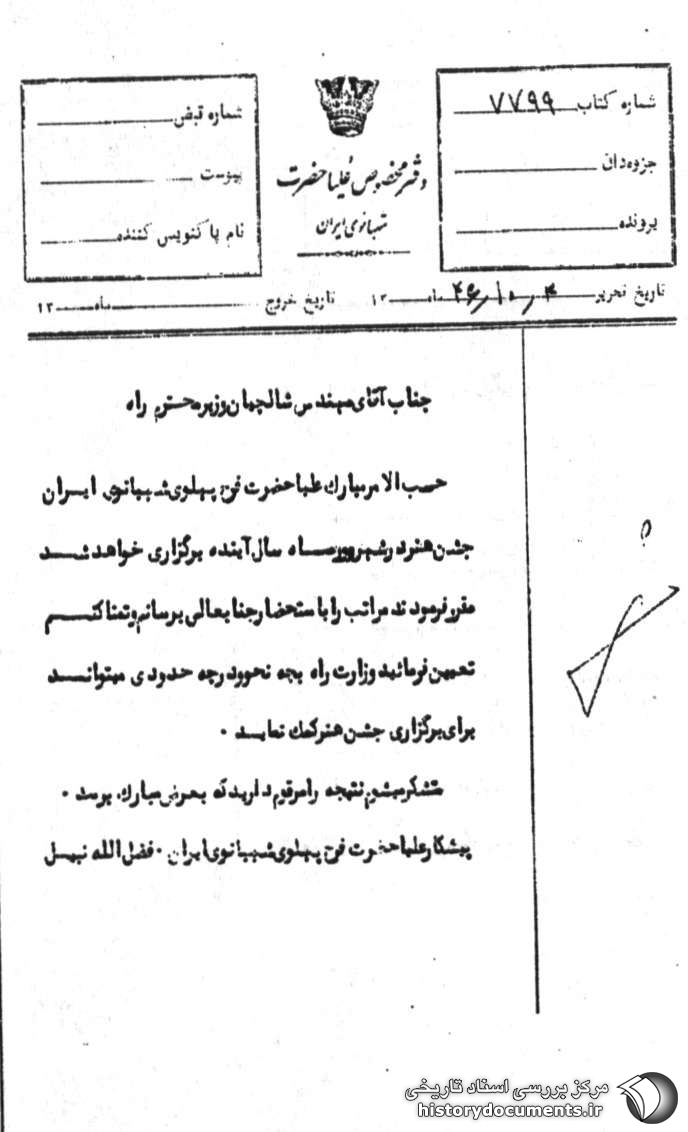 شماره کتاب ۷۷۹۹
جزوه‌دان
پرونده
دفتر مخصوص علیاحضرت
شهبانوی ایران
شماره قبض
پیوست
نام پاکنویس کننده
تاریخ تحریر ۴ر۱۰ر۴۶ ماه ۱۳ تاریخ خروج ماه ۱۳
جناب آقای مهندس شالچیان وزیر محترم راه
حسب الامر مبارک علیاحضرت فرح پهلوی شهبانوی ایران
جشن هنر در شهریور ماه سال آینده برگزاری خواهد شد
مقرر فرمودند مراتب را باستحضار جنابعالی برسانم و تمنا کنم
تعیین فرمائید وزارت راه بچه نحو و درچه حدودی میتواند
برای برگزاری جشن هنر کمک نماید .
متشکر میشوم نتیجه را مرقوم دارید که بعرض مبارک برسد .
پیشکار علیاحضرت فرح پهلوی شهبانوی ایران . فضل الله نبیل
مرکز بررسی اسناد تاریخی
historydocuments.ir